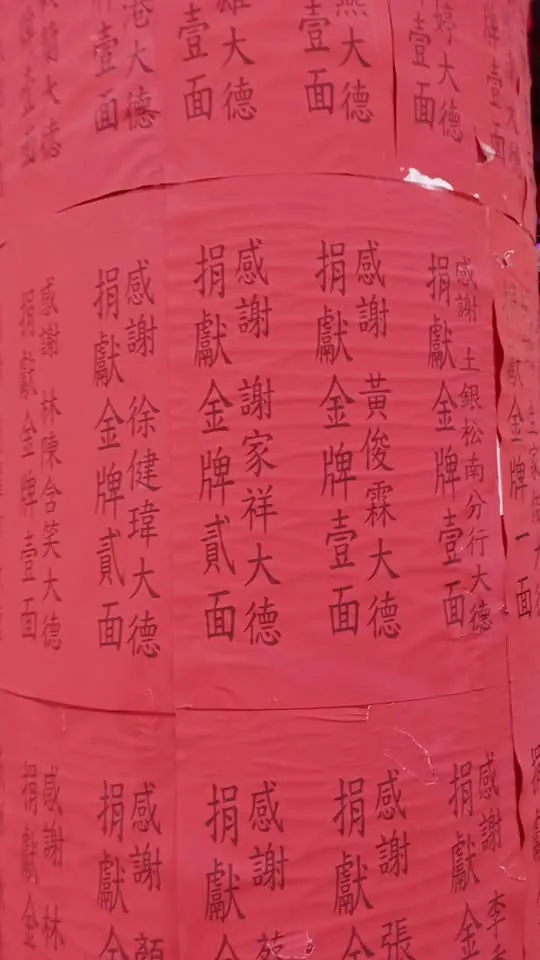 大德
壹面
大德
壹面
大德
壹面
大德
壹面
大德
壹面
感謝 土銀松南分行大德
捐獻金牌壹面
感謝 黃俊霖大德
捐獻金牌壹面
感謝 謝家祥大德
捐獻金牌貳面
感謝 徐健瑋大德
捐獻金牌貳面
感謝 林陳含笑大德
捐獻金牌壹面
金牌一面
感謝 李
捐獻金
感謝 張
捐獻金
感謝
捐獻金
感謝 顏
捐獻金
感謝 林
捐獻金